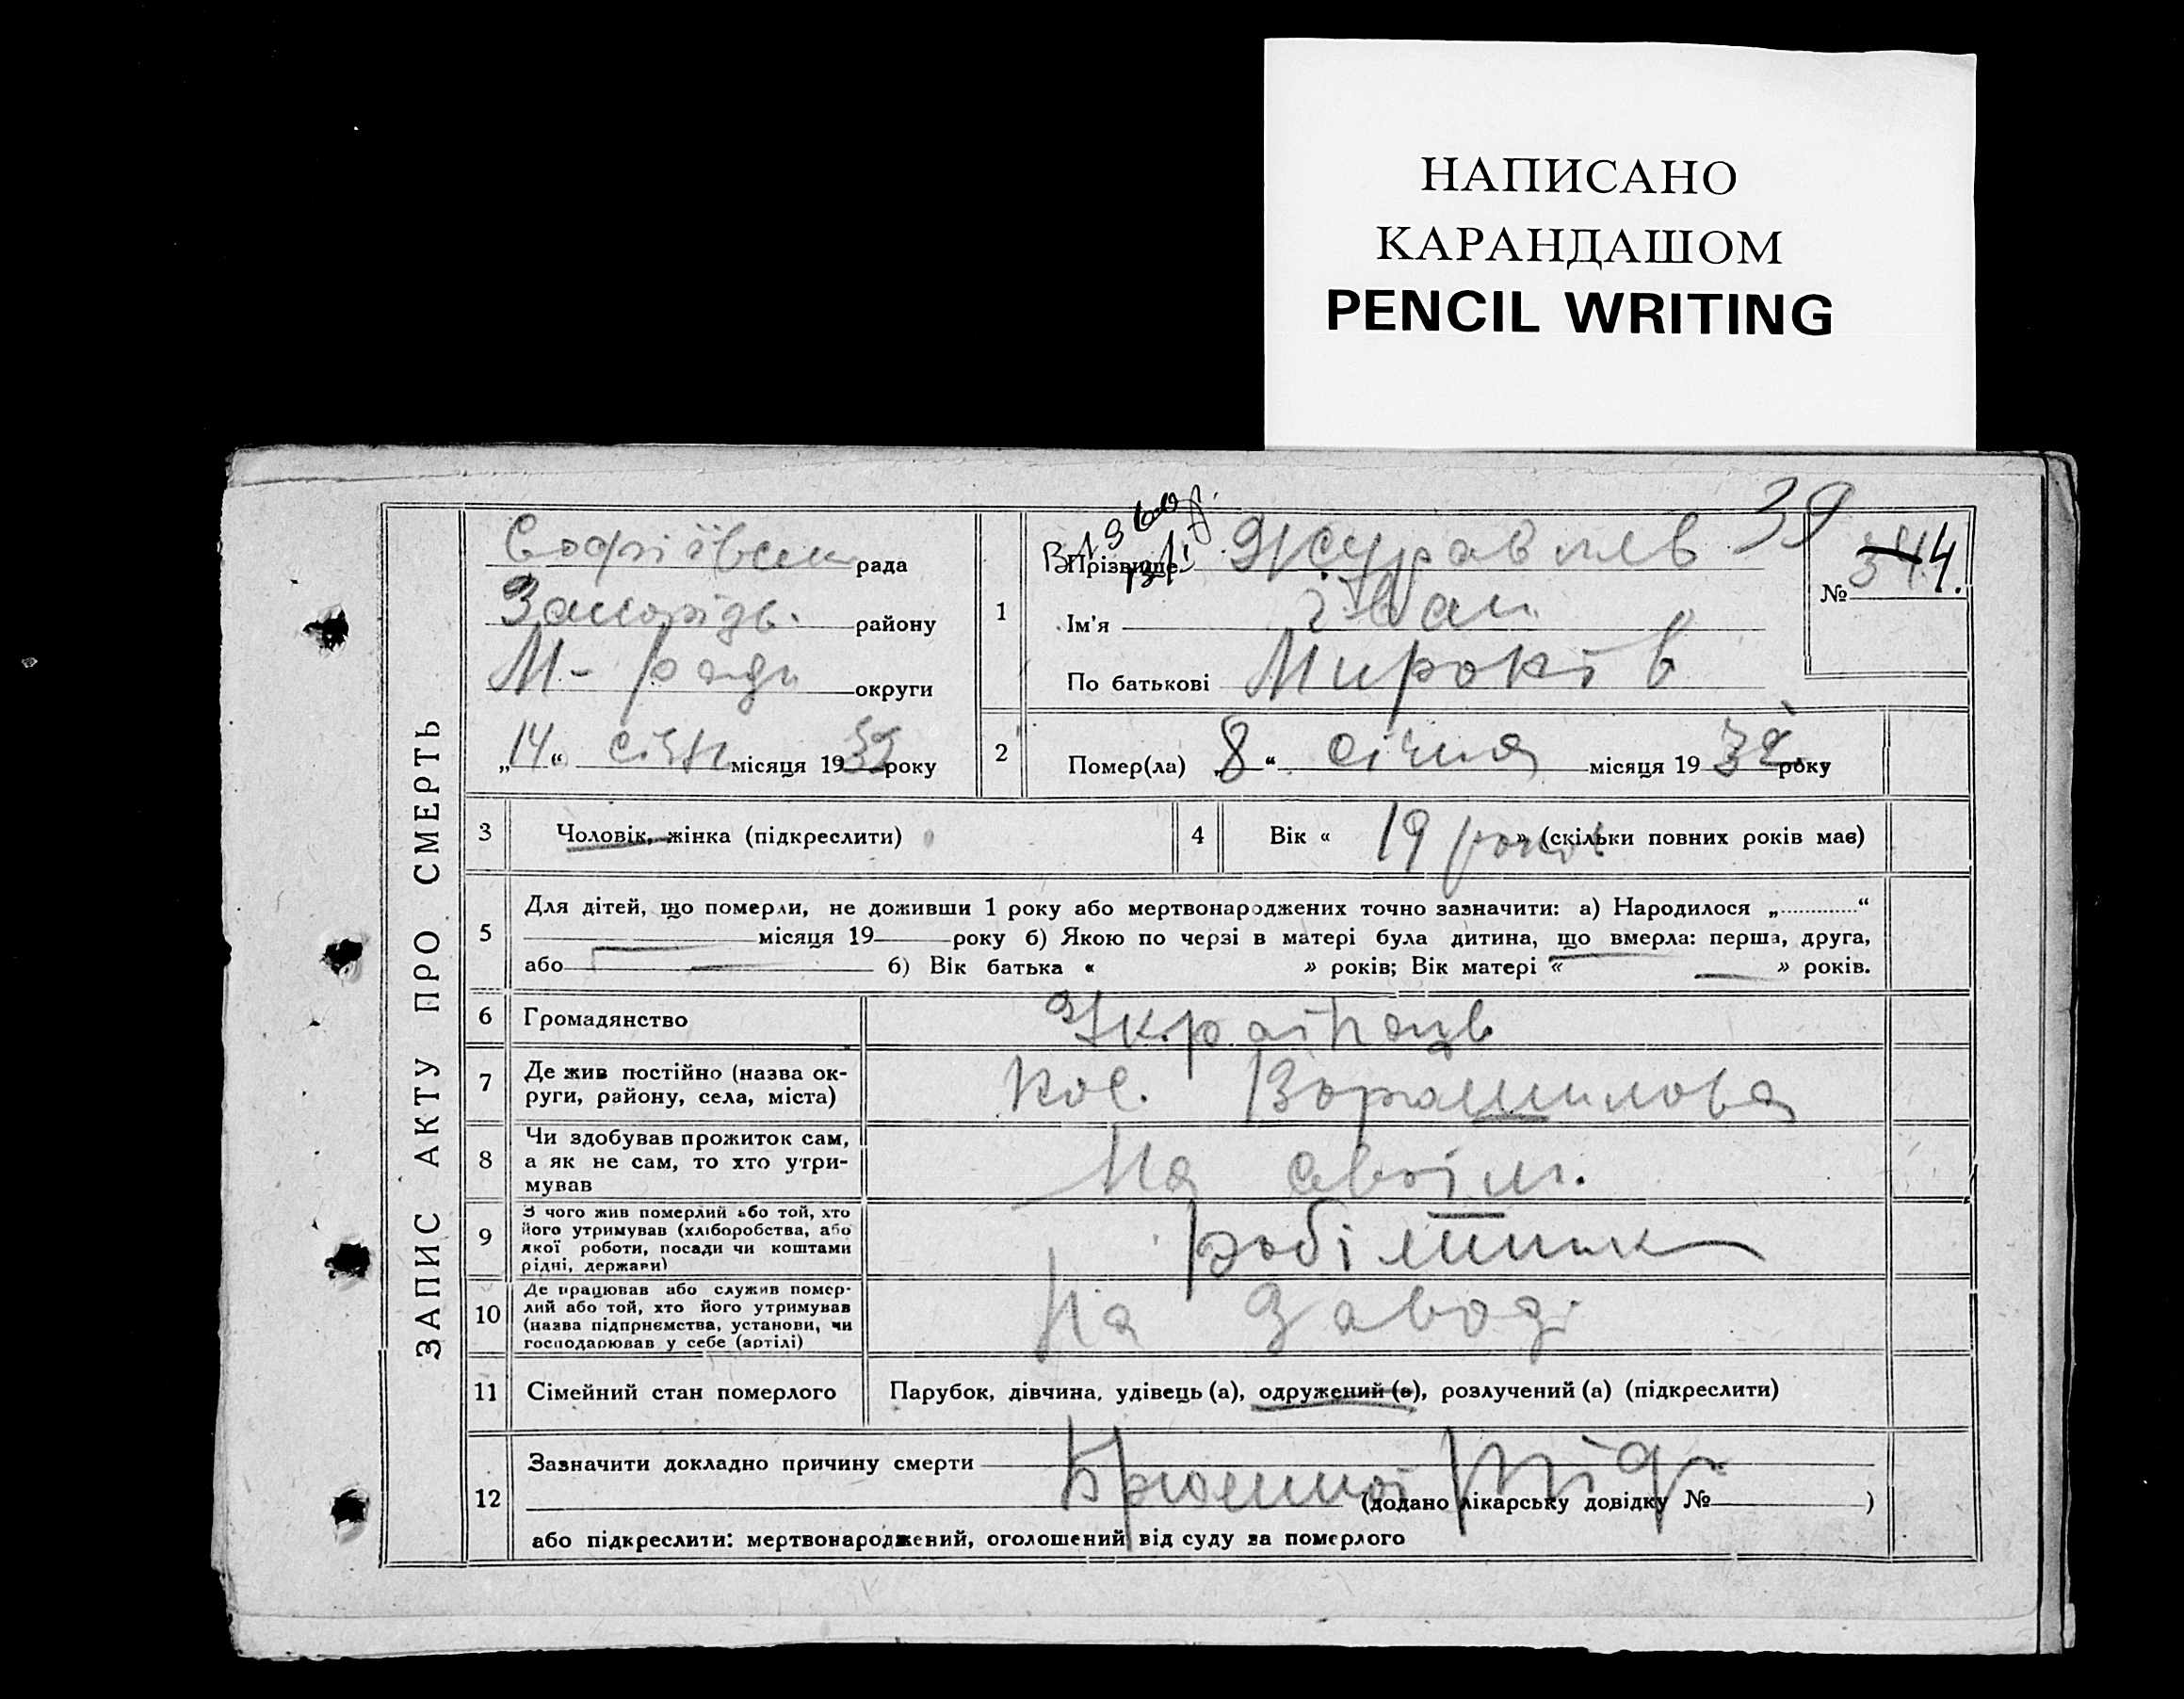 НАПИСАНО
КАРАНДАШОМ
PENCIL WRITING
39
ЗАПИС АКТУ ПРО СМЕРТЬ
Софіївськ рада
Запорізь. району
М-ради округи
„14“ січн місяця 1932 року
1
Прізвище Журавлев
Ім'я Іван
По батькові
№ 34 4.
2
Помер(ла) „8“ січня місяця 1932 року
3 Чоловік, жінка (підкреслити)
4 Вік « 19 років » (скільки повних років має)
5
Для дітей, що померли, не доживши 1 року або мертвонароджених точно зазначити: а) Народилося „ “
місяця 19 року б) Якою по черзі в матері була дитина, що вмерла: перша, друга,
або б) Вік батька « » років; Вік матері « » років.
6 Громадянство Українець
7 Де жив постійно (назва ок-
руги, району, села, міста) пос. Ворошилова
8 Чи здобував прожиток сам,
а як не сам, то хто утри-
мував На своїм.
9 З чого жив померлий або той, хто
його утримував (хліборобства, або
якої роботи, посади чи коштами
рідні, держави) робітник
10 Де працював або служив помер-
лий або той, хто його утримував
(назва підприємства, установи, чи
господарював у себе (артілі) На заводі
11 Сімейний стан померлого Парубок, дівчина, удівець (а), одружений (а), розлучений (а) (підкреслити)
12
Зазначити докладно причину смерти Брюшної тіф
(додано лікарську довідку № )
або підкреслити: мертвонароджений, оголошений від суду за померлого